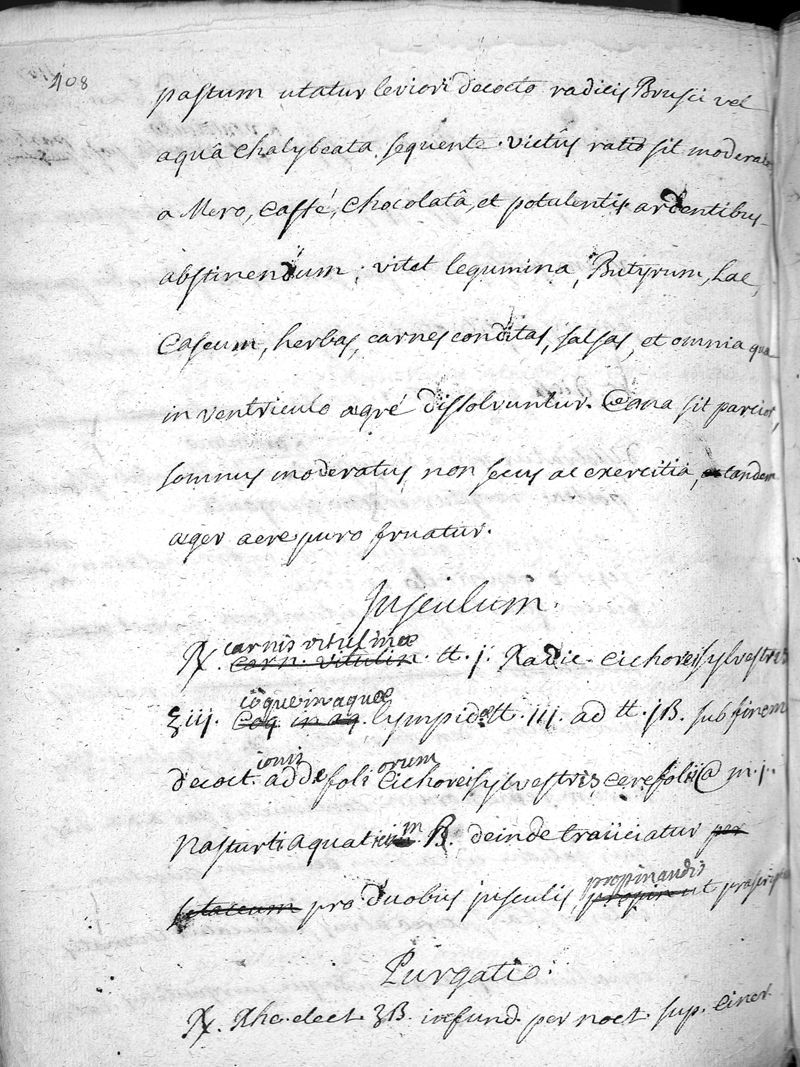 408
pastum utatur leviori decocto radicis Brusci vel
aquâ chalybeata sequente. victûs ratio sit moderata
a Mero, caffé, chocolatâ, et potulentis ardentibus
abstinendum; vitet legumina, Butyrum, Lac,
Caseum, herbas, carnes conditas, salsas, et omnia quæ
in ventriculo ægré dissolvuntur. Cæna sit parcior,
somnus moderatus, non secus ac exercitia, et tandem
æger aere puro fruatur.
Jusculum.
carnis vitulinæ
℞. carn. vitulin. ℔. j. Radic. cichorei sylvestris
coque in aquæ
℥iij. coq in aq. lympidæ ℔ iij. ad ℔ jß. sub finem
ionis orum
decoct. adde foli cichorei sylvestris cerefolii @ m. j.
m
Nasturti aquatici ß. deinde traiiciatur per
propinandis
setaceum pro duobus jusculis, propin ut
Purgatio.
℞. Rhe. elect. ʒß. infund. per noct. sup. ciner.